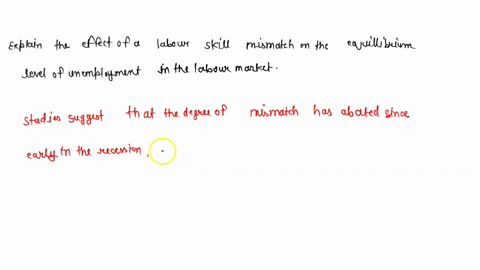 Explain the effect of a labour skill mismatch on the equillibrium
level of unemployment in the labour market.
Studies suggest that the degree of mismatch has abated since
early in the recession,